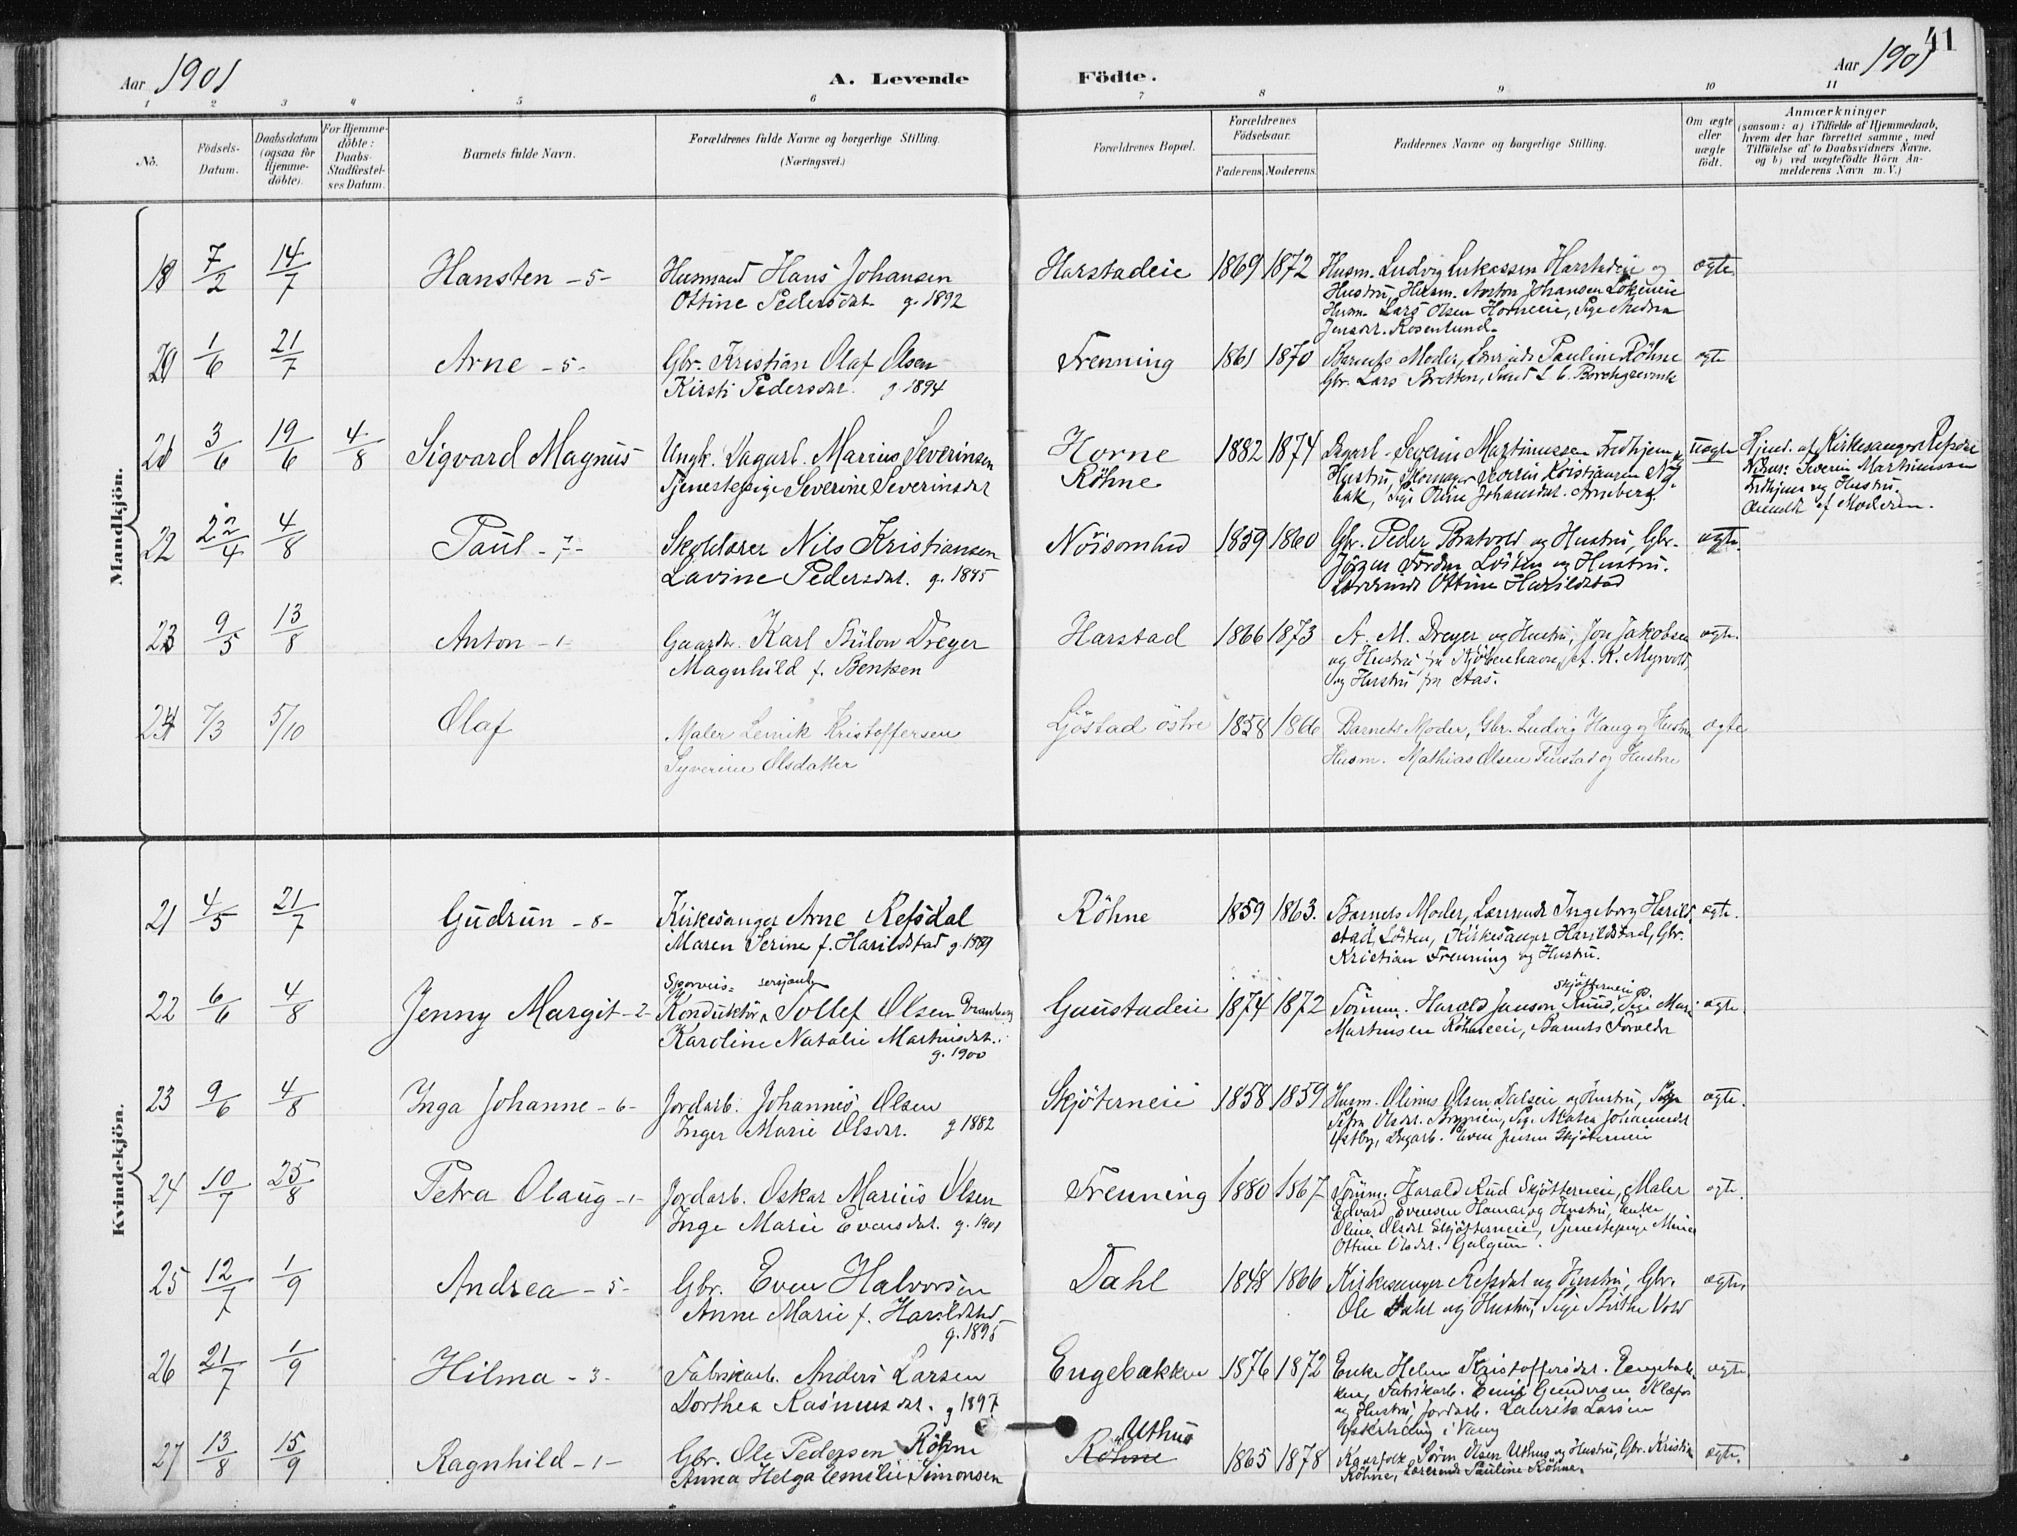 41
Aar 1901
A. Levende Födte.
Aar 1901
1 2 3 4 5 6 7 8 9 10 11
No.
Födsels-Datum.
Daabsdatum (ogsaa for Hjemme-döbte).
For Hjemme-döbte: Daabs-Stadfæstel-ses Datum.
Barnets fulde Navn.
Forældrenes fulde Navne og borgerlige Stilling.
(Næringsvei.)
Forældrenes Bopæl.
Forældrenes Födselsaar.
Faderens. Moderens.
Faddernes Navne og borgerlige Stilling.
Om ægte eller uægte födt.
Anmærkninger
(saasom: a) i Tilfælde af Hjemmedaab,
hvem der har forrettet samme, med
Tilföielse af to Daabsvidners Navne.
og b) ved uægtefödte Börn An-
melderens Navn m. V.)
Mandkjön.
18 7/2 14/7 Hansten - 5 - Husmand Hans Johansen Harstadeie 1869 1872 Husm. Ludvig Lukassen Harstadeie og ægte
Ottine Pedersdat. g. 1892 Hustru, Husm. Anton Johansen Lökeneie
Husm. Lars Olsen Horneeie, Pige
Jensdat. Rosenlund.
20 1/6 21/7 Arne - 5 - Gbr. Kristian Olaf Olsen Frenning 1861 1870 Barnets Moder, Lærerinde Pauline Röhne ægte
Kirsti Pedersdat. g 1894 Gbr. Lars Bretten, Borchgrevink
21 3/6 19/6 4/8 Sigvard Magnus Ungk. Dagarb. Marius Severinsen Horne 1882 1874 Dagarb. Severin Martinussen Fredhjem og uægte Hjmd. af Kirkesanger Refsdal
Tjenestepige Severine Severinsdat Röhne Hustru, Skomager Severin Kristiansen
bak, Pige Oline Johansdat. Arneberg Vidner: Severin Martinussen
Fredhjem og Hustru.
Anmeldt af Moderen.
22 22/4 4/8 Paul - 7 - Skolelærer Nils Kristiansen Nöisomhed 1859 1860 Gbr. Peder Bratvold og Hustru, Gbr. ægte.
Lavine Pedersdat. g. 1885 Jörgen Löiten og Hustru.
Lærerinde Ottine Harildstad
23 9/5 13/8 Anton - 1 - Gaardbr. Karl Bülow Dreyer Harstad 1866 1873 A. M. Dreyer og Hustru, Jon Jakobsen ægte.
Magnhild f. Bentzen og Hustru fra Kjöbenhavn, A. K. Myrvold,
og Hustru fra Aas.
24 7/3 5/10 Olaf Maler Kristoffersen Gjöstad östre 1858 1866 Barnets Moder, Gbr. Ludvig Haug og Hustru ægte
Syverine Olsdatter Husm. Mathias Olsen Finstad og Hustru
Kvindekjön.
21 4/5 21/7 Gudrun - 8 - Kirkesanger Arne Refsdal Röhne 1859 1863. Barnets Moder, Lærerinde Ingeborg Harild- ægte.
Maren Serine f. Harildstad g 1889 stad, Löiten, Kirkesanger Harildstad, Gbr.
Kristian Frenning og Hustru.
Sporveis= sersjant Skjötterneie
22 6/6 4/8 Jenny Margit - 2 - Konduktör Tollef Olsen Granberg Gaustadeie 1874 1872 Tömm. Harald Janson Ruud, Pige Mari ægte.
Karoline Natalie Martinsdat. Martinsen Röhneeie, Barnets Forældre
g. 1900
23 9/6 4/8 Inga Johanne - 6 - Jordarb. Johannes Olsen Skjöterneie 1858 1859 Husm. Olinus Olsen Dalseie og Hustru, Pige ægte.
Inger Marie Olsdat. g 1882 Olsdat. Bryneeie, Pige Mathea Johannesdat
Dagarb. Even Jensen Skjöterneie
24 10/7 25/8 Petra Olaug - 1 - Jordarb. Oskar Marius Olsen Frenning 1880 1867 Tömm. Harald Rud Skjötterneie, Maler ægte.
Inge Marie Evensdat. g. 1901 Edvard Evensen Hamar og Hustru, Enke
Oline Olsdat Skjötterneie, Tjenestepige Mina
Ottine Olsdat. Galgum.
25 12/7 1/9 Andrea - 5 - Gbr. Even Halvorsen Dahl 1848 1866 Kirkesanger Refsdal og Hustru, Gbr. ægte.
Anne Marie f. Harildstad Ole Dahl og Hustru, Pige Birthe Vold
g. 1895
26 21/7 1/9 Hilma - 3 - Fabrikarb. Anders Larsen Engebakken 1876 1872 Enke Helene Kristoffersdat. Engebak- ægte
Dorthea Rasmusdat. g 1897 ken, Fabrikarb. Emil Gundersen Klæpa
og Hustru, Jordarb. Laurits Larsen
i Vang
27 13/8 15/9 Ragnhild - 1 - Gbr. Ole Pedersen Röhne Uthus Röhne 1865 1878 Kaarfolk Sören Olsen Uthus og Hustru, Gbr. Kristian ægte.
Anna Helga Emilie Simonsen Röhne, Lærerinde Pauline Röhne.